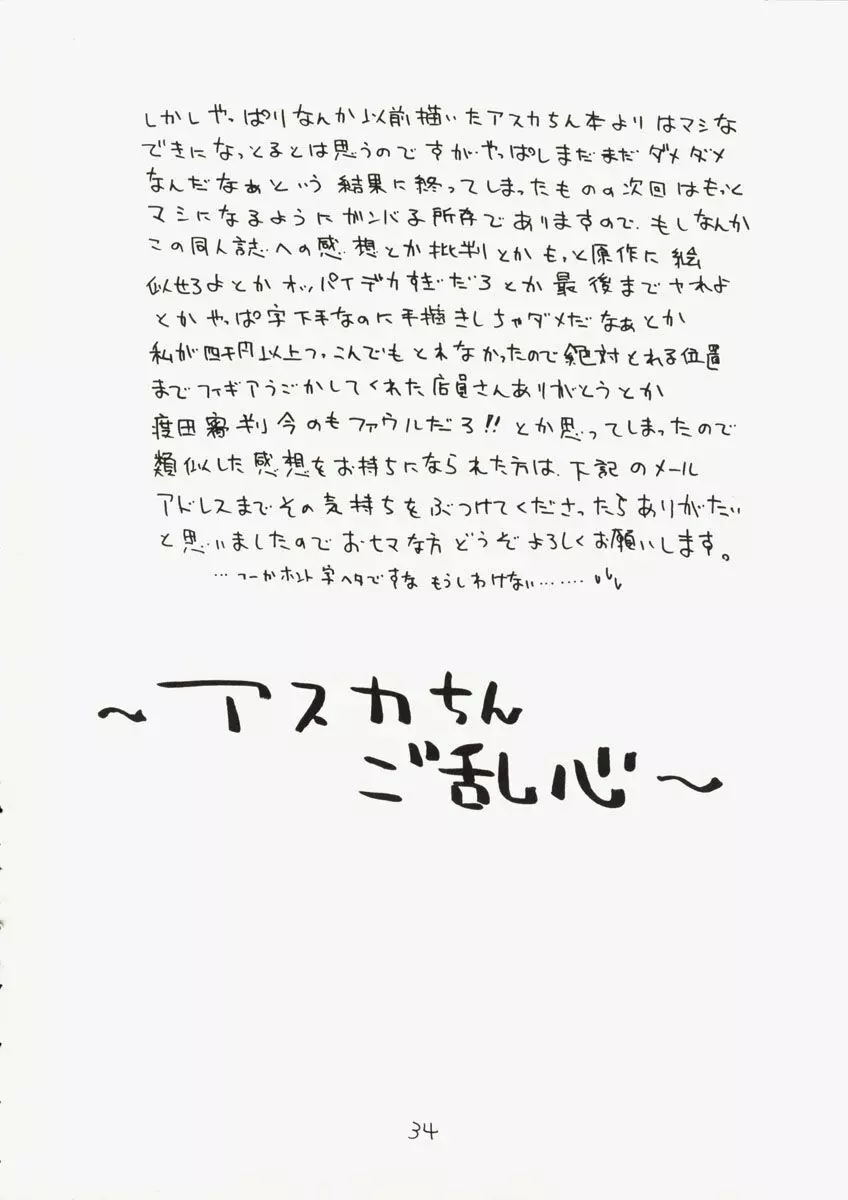 しかしやっぱりなんか以前描いたアスカちん本よりはマシな
できになっとるとは思うのですがやっぱしまだまだダメダメ
なんだなぁという結果に終ってしまったものの次回はもっと
マシになるようにガンバる所存でありますので、もしなんか
この同人誌への感想とか批判とかもっと原作に絵
似せろよとかオッパイデカすぎだろとか最後までヤれよ
とかやっぱ字下手なのに手描きしちゃダメだなぁとか
私が四千円以上つっこんでもとれなかったので絶対とれる位置
までフィギアうごかしてくれた店員さんありがとうとか
渡田審判今のもファウルだろ!!とか思ってしまったので
類似した感想をお持ちになられた方は、下記のメール
アドレスまでその気持ちをぶつけてくださったらありがたい
と思いましたのでおヒマな方どうぞよろしくお願いします。
…つーかホント字ヘタですな もうしわけない………
〜アスカちん
ご乱心〜
34